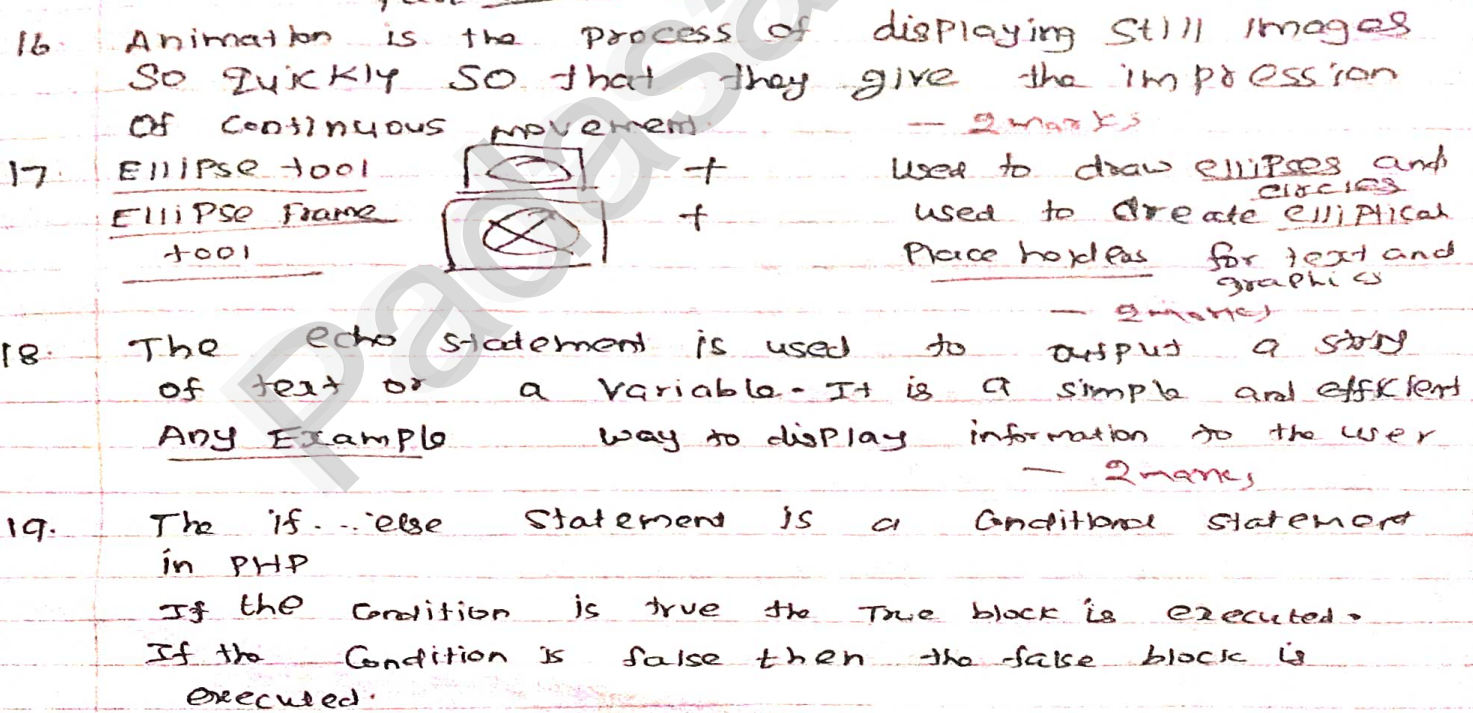 16. Animation is the process of displaying Still Images
So Quickly So that they give the impression
Of Continuous movement. — 2 marks
17. Ellipse tool + Used to draw ellipses and
circles
Ellipse Frame + used to create elliptical
tool Place holders for text and
graphics
— 2 marks
18. The echo statement is used to output a
of text or a Variable. It is a simple and efficient
Any Example way to display information to the user
— 2 marks
19. The if...else Statement is a Conditional statement
in PHP
If the Condition is true the True block is executed.
If the Condition is false then the false block is
executed.
Padasa